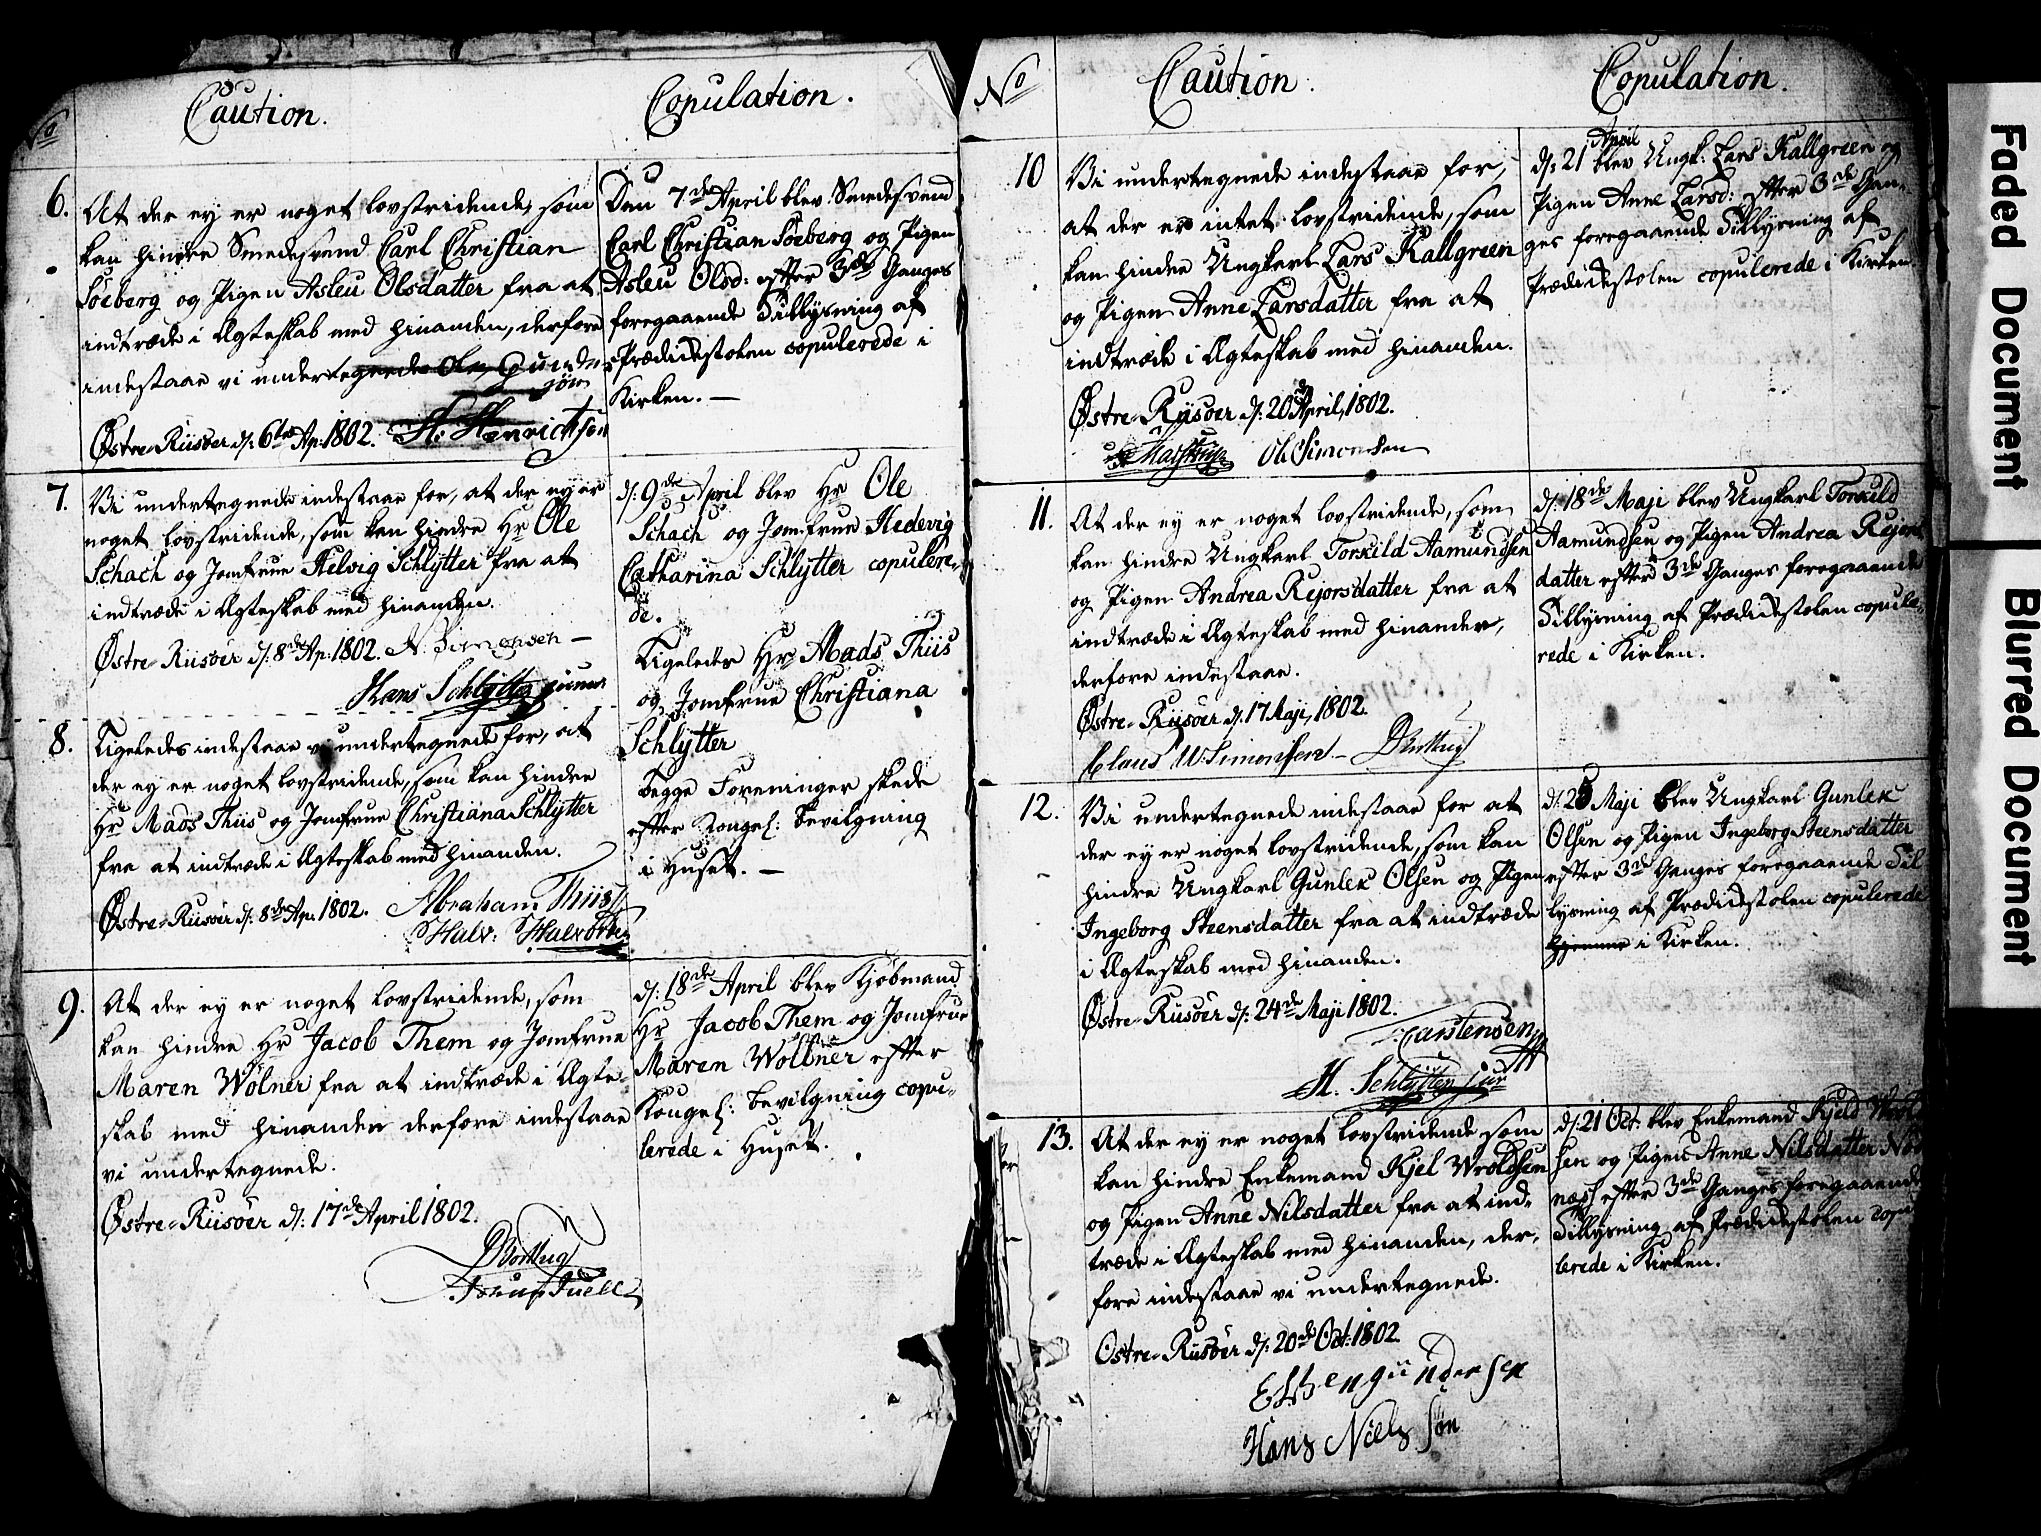 No
Caution.
Copulation.
6.
At der ey er noget lovstridende, som
kan hindre Smedesvend Carl Christian
Söeberg og Pigen Asleu Olsdatter fra at
indtræde i Ægteskab med hinanden, derfore
indestaar vi undertegnede
Østre-Riisöer d: 6te Ap. 1802. H. Henrichsen
Den 7de April blev Smedesvend
Carl Christian Söeberg og Pigen
Asleu Olsd: efter 3de Ganges
foregaaende Tillysning af
Prædikestolen copulerede i
Kirken. —
7.
Vi undertegnede indestaar for, at der ey er
noget lovstridende, som kan hindre Hr Ole
Schach og Jomfrue Helvig Schlytter fra at
indtræde i Ægteskab med hinanden.
Østre-Riisöer d: 8de Ap. 1802. N. Simonsen —
Hans Schlytter junior
d: 9de April blev Hr Ole
Schach og Jomfrue Hedevig
Catharina Schlytter copulere-
de.
Ligeledes Hr Mads Thiis
og Jomfrue Christiana
Schlytter
Begge Foreninger skede
efter Kongel: Bevilgning
i Huset. —
8.
Ligeledes indestaar vi undertegnede for, at
der ey er noget lovstridende, som kan hindre
Hr Mads Thiis og Jomfrue Christiana Schlytter
fra at indtræde i Ægteskab med hinanden.
Østre-Riisöer d: 8de Ap. 1802. Abraham Thiis
Halv: Halvorsen
9.
At der ey er noget lovstridende, som
kan hindre Hr Jacob Them og Jomfrue
Maren Wölner fra at indtræde i Ægte-
skab med hinanden derfore indestaar
vi undertegnede.
Østre-Riisöer d: 17de April 1802.
d: 18de April blev Kjöbmand
Hr Jacob Them og Jomfrue
Maren Wöllner efter
Kongel: Bevilgning copu-
lerede i Huset.
No
Caution.
Copulation.
10
Vi undertegnede indestaar for,
at der er intet lovstridende, som
kan hindre Ungkarl Lars Kallgreen
og Pigen Anne Larsdatter fra at
indtræde i Ægteskab med hinanden.
Østre-Riisöer d: 20de April, 1802.
Ole Simonsen
d: 21 April blev Ungk: Lars Kallgreen og
Pigen Anne Larsd: efter 3de Gan-
ges foregaaende Tillysning af
Prædikestolen copulerede i Kirken.
11.
At der ey er noget lovstridende, som
kan hindre Ungkarl Torkild Aamundsen
og Pigen Andrea Rejorsdatter fra at
indtræde i Ægteskab med hinanden,
derfore indestaar.
Østre-Riisöer d: 17 Maji, 1802.
Claus W. Simonsen —
d: 18de Maji blev Ungkarl Torkild
Aamundsen og Pigen Andrea Rejors
datter efter 3de Ganges foregaaende
Tillysning af Prædikestolen copule-
rede i Kirken.
12.
Vi undertegnede indestaar for at
der ey er noget lovstridende, som kan
hindre Ungkarl Gunlek Olsen og Pigen
Ingeborg Steensdatter fra at indtræde
i Ægteskab med hinanden.
Østre-Riisöer d: 24de Maji 1802.
Carstensen
H. Schlytter jun
d: 25 Maji blev Ungkarl Gunlek
Olsen og Pigen Ingeborg Steensdatter
efter 3de Ganges foregaaende Til
lysning af Prædikestolen copulerede
hjemme i Kirken.
13.
At der ey er noget lovstridende som
kan hindre Enkemand Kjel Wroldsen
og Pigen Anne Nilsdatter fra at ind-
træde i Ægteskab med hinanden, der-
fore indestaar vi undertegnede.
Ostre-Riisöer d: 20de Oct: 1802.
Esben gundersen
Hans Niels søn
d: 21 Oct: blev Enkemand Kjeld
sen og Pigen Anne Nilsdatter
næs efter 3de Ganges foregaaende
Tillysning af Prædikestolen copu
lerede i Kirken.
Faded Document
Blurred Document